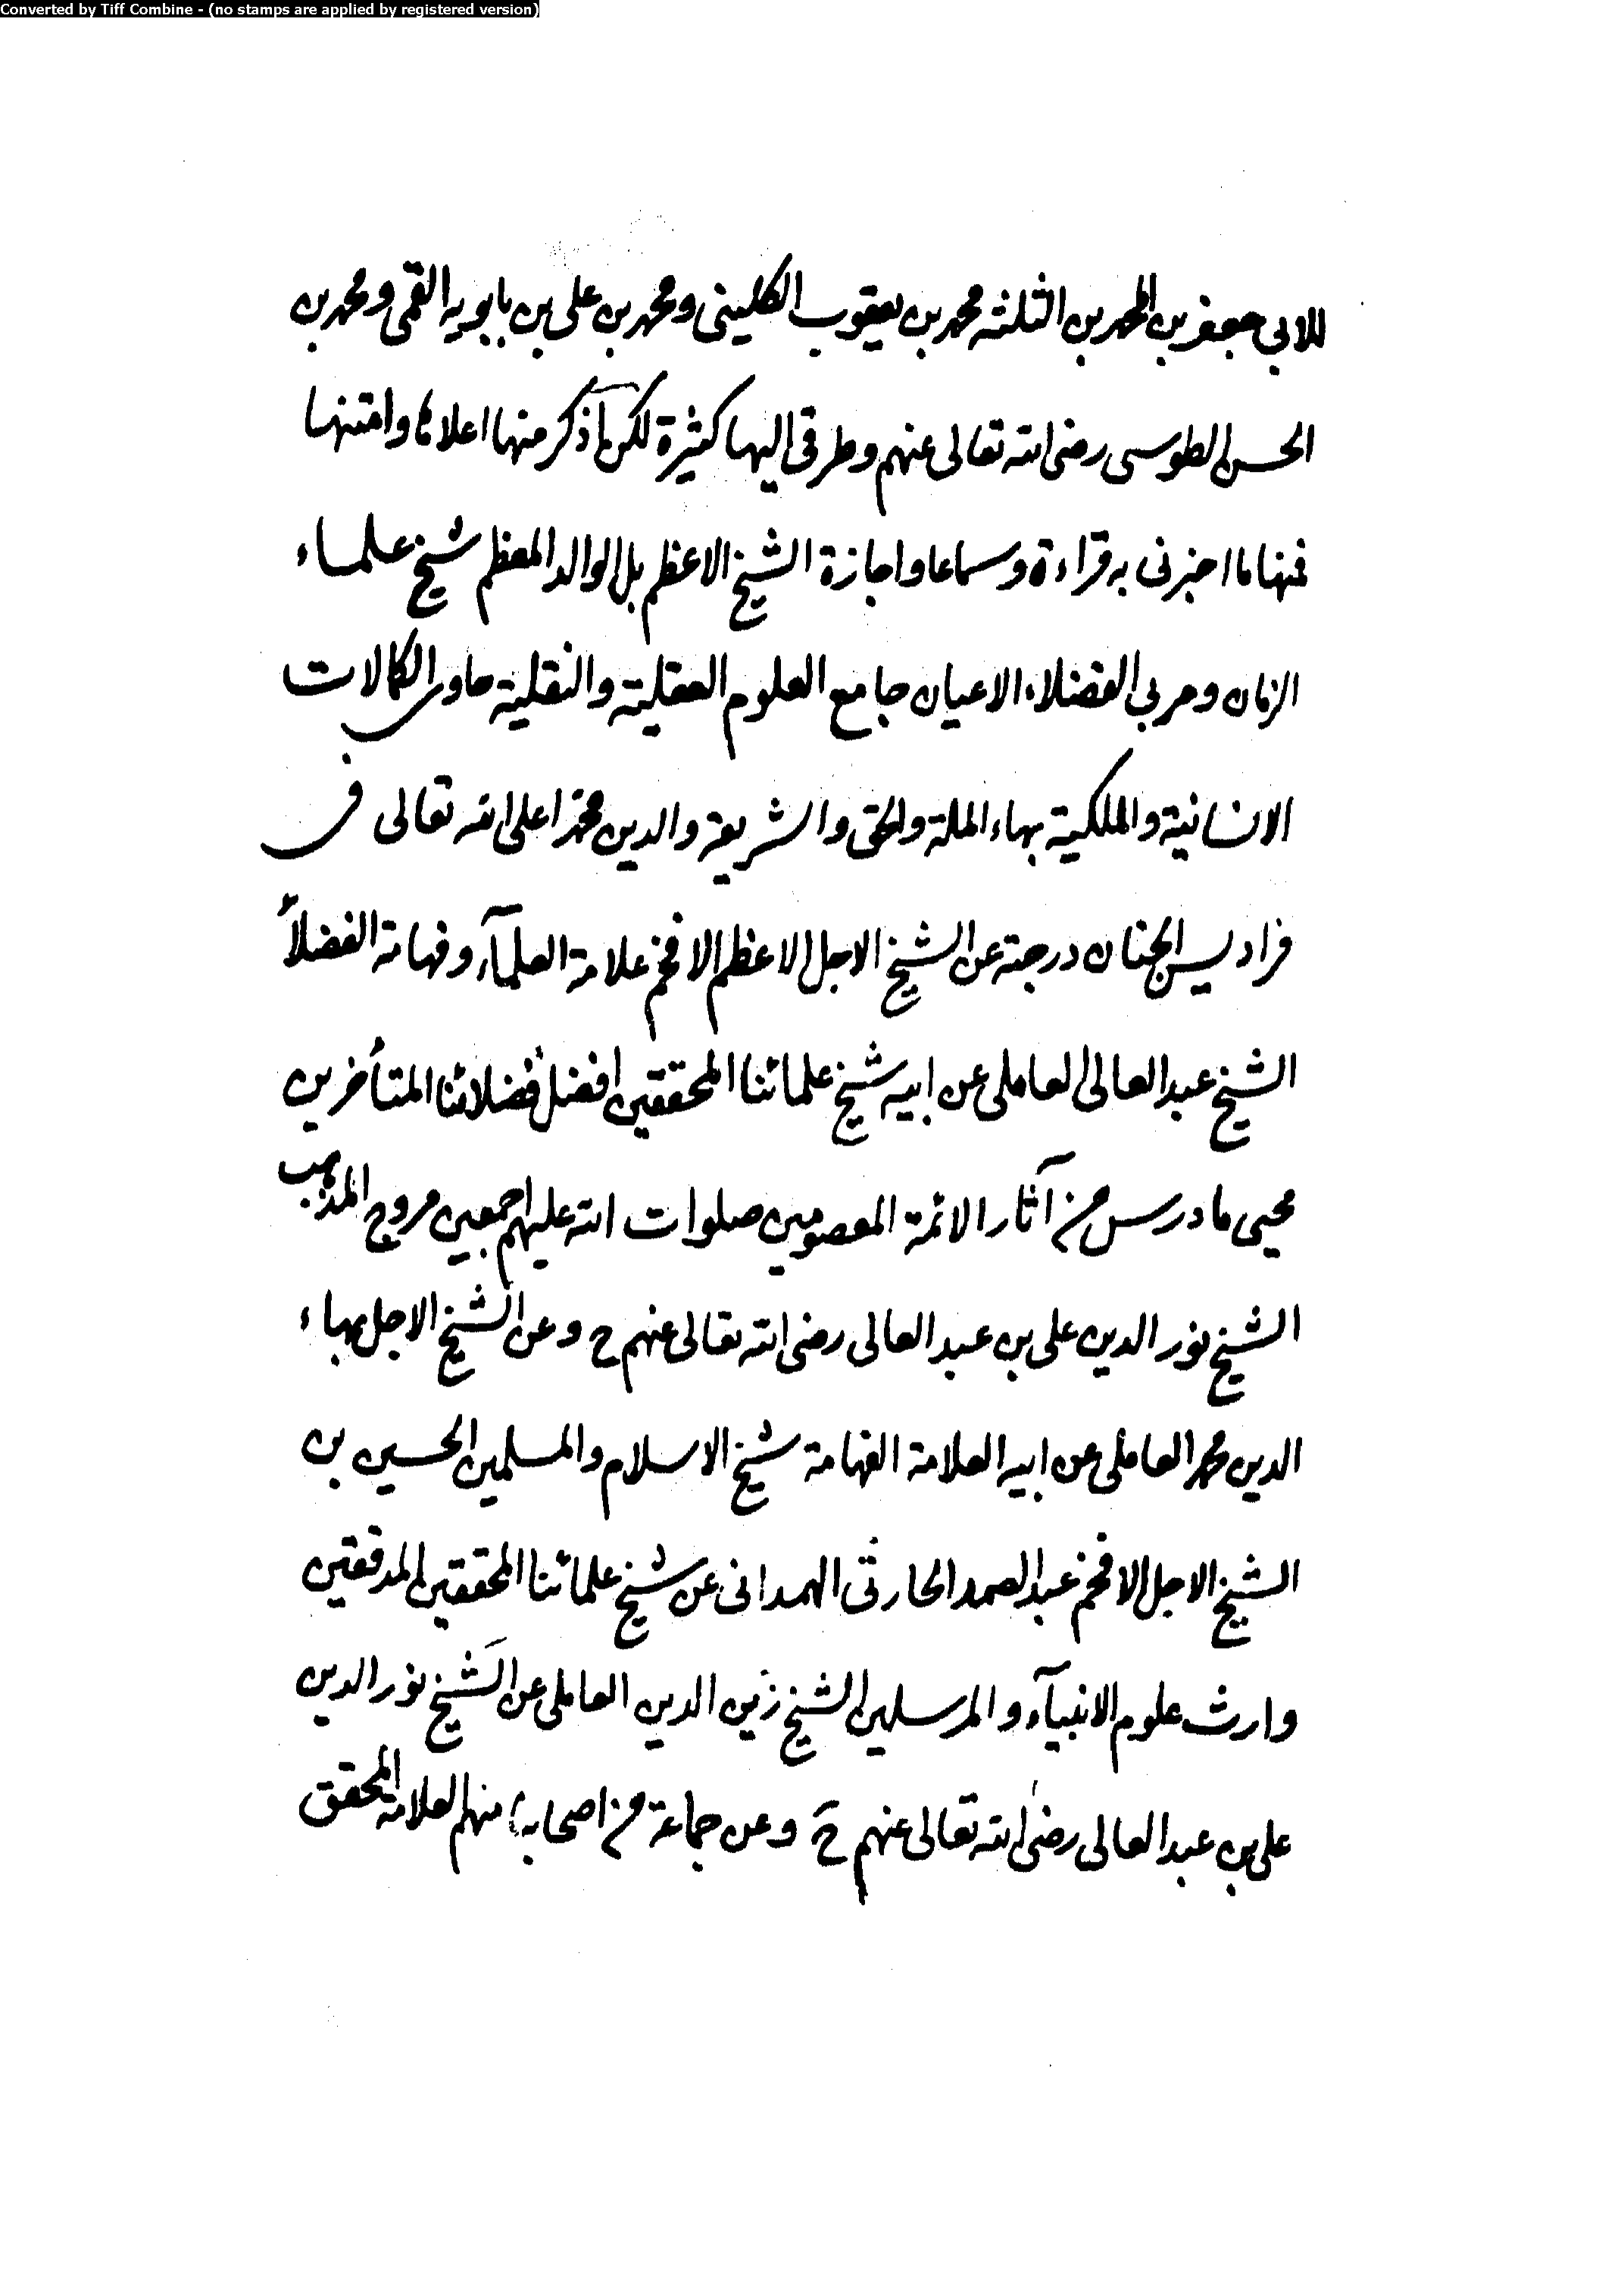 Converted by Tiff Combine - (no stamps are applied by registered version)
للابي جعفر بن المحمد بن الثلثه محمد بن يعقوب الكليني ومحمد بن علي بن بابويه القمي ومحمد بن
الحسن الطوسي رضى الله تعالى عنهم وطرقي اليها كثيرة لكن اذكر منها اعلاها وامتنها
فمنها ما اخبرنى به قراءة وسماعا واجازة الشيخ الاعظم بل الوالد المعظم شيخ علماء
الزمان ومربى الفضلاء الاعيان جامع العلوم العقلية والنقلية حاوى الكمالات
الانسانية والملكية بهاء الملة والحق والشريعة والدين محمد اعلى الله تعالى فى
فراديس الجنان درجته عن الشيخ الاجل الاعظم الافخم علامة العلمآء وفهامة الفضلاء
الشيخ عبد العالى العاملى عن ابيه شيخ علمائنا المحققين افضل فضلائنا المتأخرين
محيى ما درس من آثار الائمة المعصومين صلوات الله عليهم اجمعين مروج المذهب
الشيخ نور الدين على بن عبد العالى رضى الله تعالى عنهم ح وعن الشيخ الاجل بهاء
الدين محمد العاملى عن ابيه العلامة الفهامة شيخ الاسلام والمسلمين الحسين بن
الشيخ الاجل الافخم عبد الصمد الحارثى الهمدانى عن شيخ علمائنا المحققين المدققين
وارث علوم الانبيآء والمرسلين الشيخ زين الدين العاملى عن الشيخ نور الدين
على بن عبد العالى رضى الله تعالى عنهم ح وعن جماعة من اصحابنا منهم العلامة المحقق